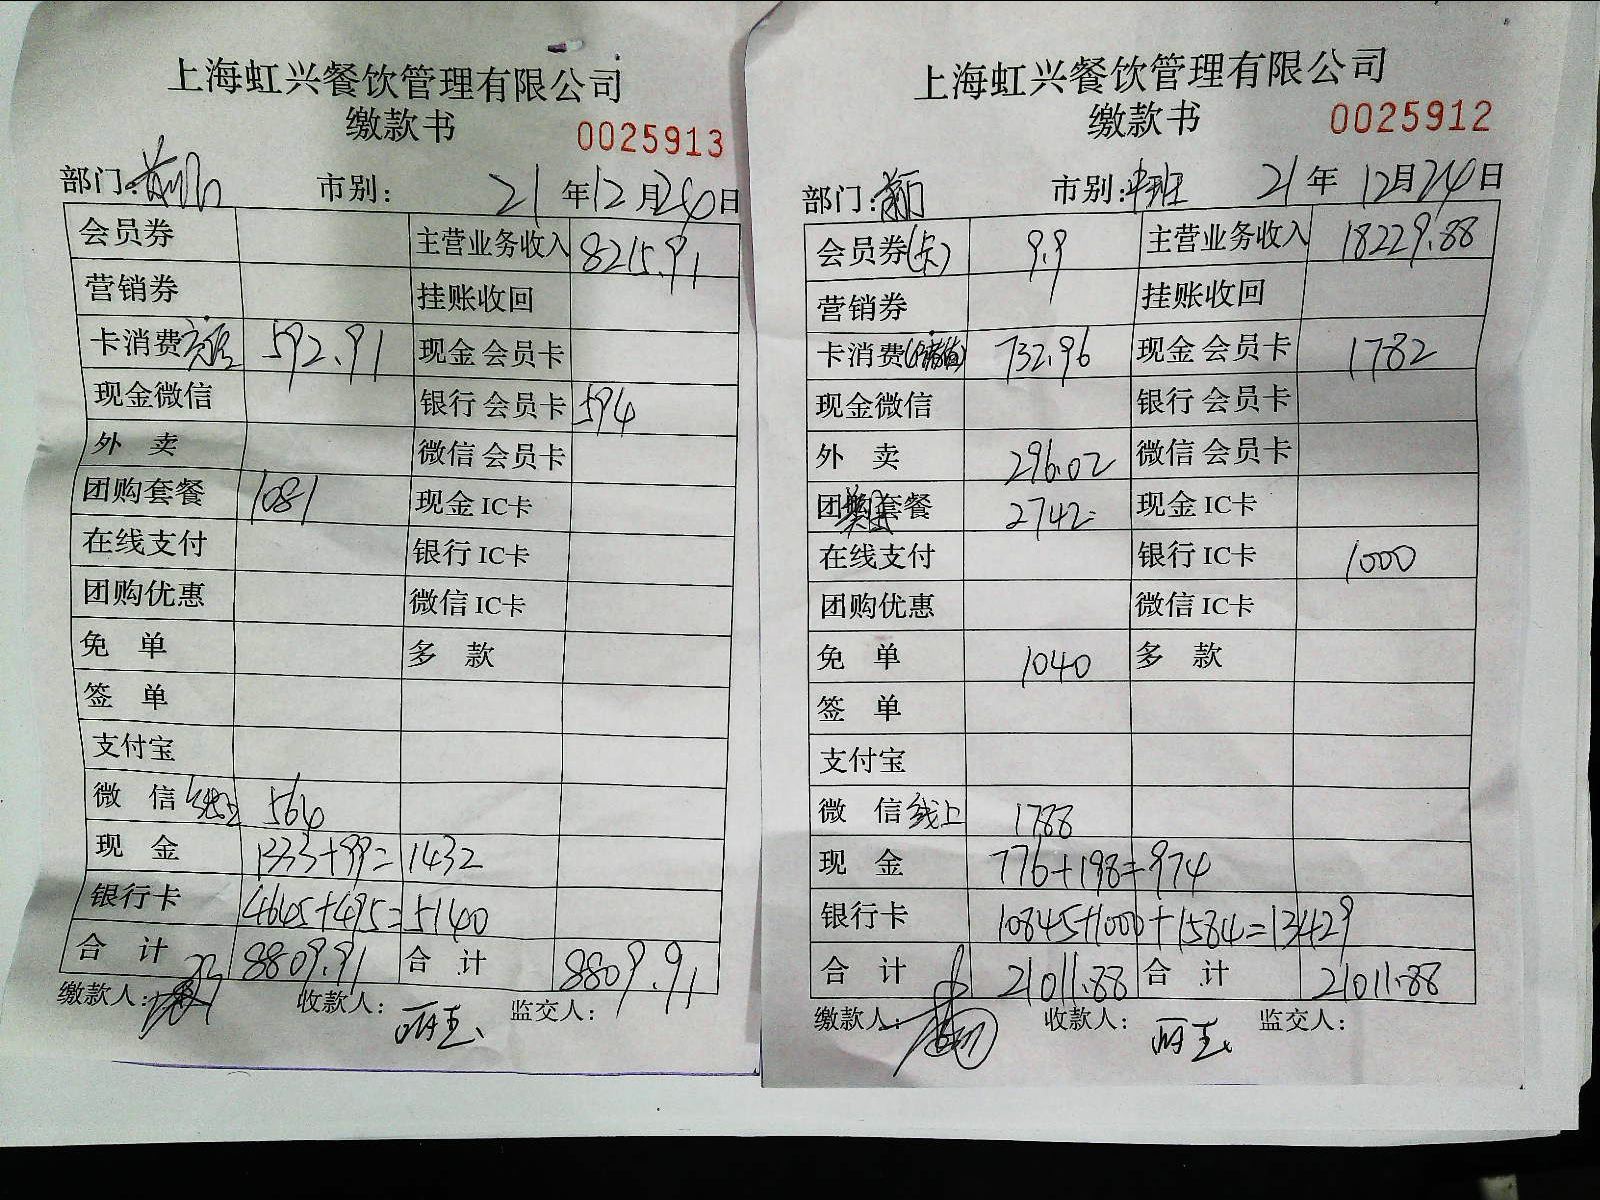 上海虹兴餐饮管理有限公司
缴款书 0025913
部门: 市别: 21年12月24日
会员券 主营业务收入 8215.91
营销券 挂账收回
卡消费 592.91 现金会员卡
现金微信 银行会员卡 594
外 卖 微信会员卡
团购套餐 1081 现金IC卡
在线支付 银行IC卡
团购优惠 微信IC卡
免 单 多 款
签 单
支付宝
微 信 线上 564
现 金 1333+99=1432
银行卡 4645+495=5140
合 计 8809.91 合 计 8809.91
缴款人: 收款人: 监交人:
上海虹兴餐饮管理有限公司
缴款书 0025912
部门: 市别:中班 21年12月24日
会员券(卡) 9.9 主营业务收入 18229.88
营销券 挂账收回
卡消费 732.96 现金会员卡 1782
现金微信 银行会员卡
外 卖 296.02 微信会员卡
团购套餐 2742 现金IC卡
在线支付 银行IC卡 1000
团购优惠 微信IC卡
免 单 1040 多 款
签 单
支付宝
微 信 线上 1788
现 金 776+198=974
银行卡 10845+1000+1584=13429
合 计 21011.88 合 计 21011.88
缴款人: 收款人: 监交人: